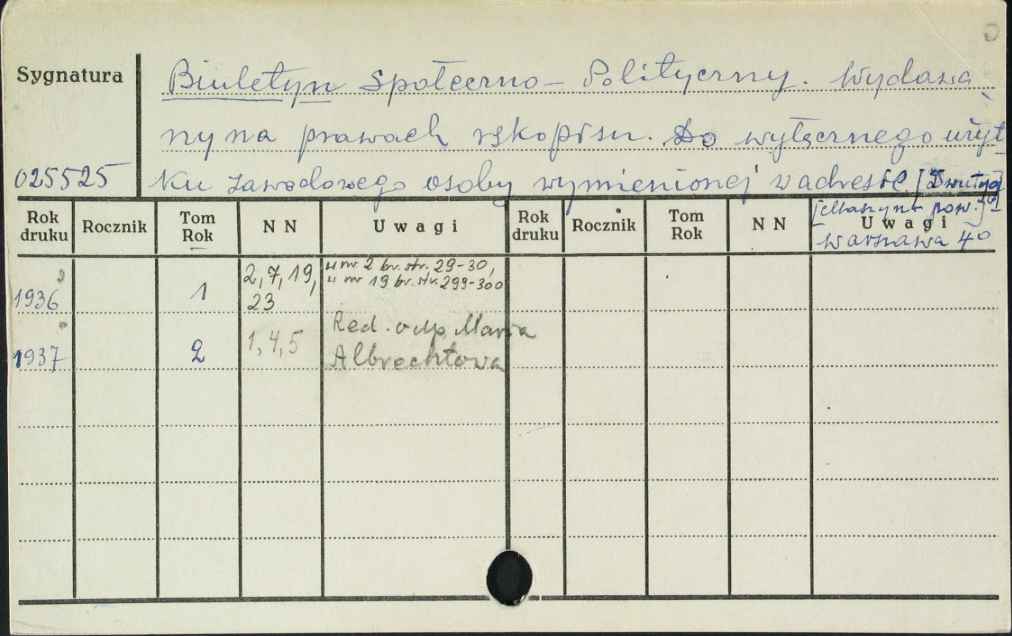 Sygnatura
Biuletyn Społeczno-Polityczny. Wydawa
ny na prawach rękopisu. Do wyłącznego użyt
025525
ku zawodowego osoby wymienionej w adresie. [Dwutyg.]
[Maszyn. pow.]
Warszawa 4°
Rok druku Rocznik Tom Rok NN Uwagi Rok druku Rocznik Tom Rok NN Uwagi
1936 1 2, 7, 19, 23 u nr 2 br. str. 29-30, u nr 19 br. str. 299-300
1937 2 1, 4, 5 Red. odp. Maria Albrechtowa